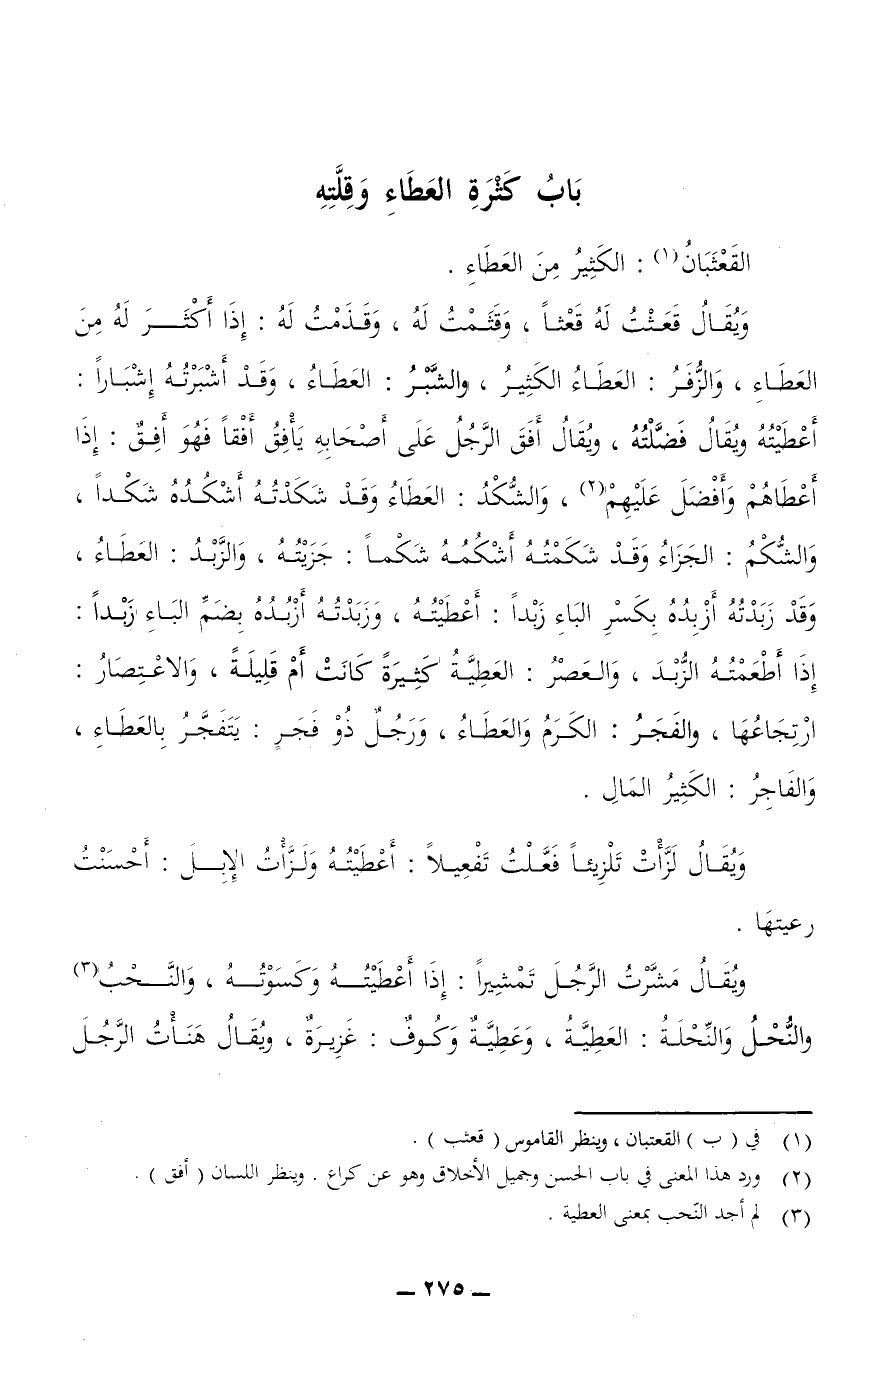 بَابُ كَثْرَةِ العَطَاءِ وَقِلَّتِهِ
القَعْثَبَانُ(١) : الكَثِيرُ مِنَ العَطَاءِ .
وَيُقَالُ قَعَثْتُ لَهُ قَعْثاً ، وَقَثَمْتُ لَهُ ، وَقَذَمْتُ لَهُ : إِذَا أَكْثَرَ لَهُ مِنَ
العَطَاءِ ، وَالزُّفَرُ : العَطَاءُ الكَثِيرُ ، والشَّبْرُ : العَطَاءُ ، وَقَدْ أَشْبَرْتُهُ إِشْبَاراً :
أَعْطَيْتُهُ ويُقَالُ فَضَّلْتُهُ ، ويُقَالُ أَفَقَ الرَّجُلُ عَلَى أَصْحَابِهِ يَأْفِقُ أَفْقاً فَهُوَ أَفِقٌ : إِذَا
أَعْطَاهُمْ وَأَفْضَلَ عَلَيْهِمْ(٢) ، وَالشُّكْدُ : العَطَاءُ وَقَدْ شَكَدْتُهُ أَشْكُدُهُ شَكْداً ،
وَالشُّكْمُ : الجَزَاءُ وَقَدْ شَكَمْتُهُ أَشْكُمُهُ شَكْماً : جَزَيْتُهُ ، وَالزَّبْدُ : العَطَاءُ ،
وَقَدْ زَبَدْتُهُ أَزْبِدُهُ بِكَسْرِ البَاءِ زَبْداً : أَعْطَيْتُهُ ، وَزَبَدْتُهُ أَزْبُدُهُ بِضَمِّ البَاءِ زَبْداً :
إِذَا أَطْعَمْتُهُ الزُّبْدَ ، وَالعَصْرُ : العَطِيَّةُ كَثِيرَةً كَانَتْ أَمْ قَلِيلَةً ، وَالاعْتِصَارُ :
ارْتِجَاعُهَا ، والفَجَرُ : الكَرَمُ وَالعَطَاءُ ، وَرَجُلٌ ذُوْ فَجَرٍ : يَتَفَجَّرُ بِالعَطَاءِ ،
وَالفَاجِرُ : الكَثِيرُ المَالِ .
وَيُقَالُ لَزَّأْتُ تَلْزِيئاً فَعَّلْتُ تَفْعِيلاً : أَعْطَيْتُهُ وَلَزَّأْتُ الإِبِلَ : أَحْسَنْتُ
رعيتهَا .
ويُقَالُ مَشَّرْتُ الرَّجُلَ تَمْشِيراً : إِذَا أَعْطَيْتُهُ وَكَسَوْتُهُ ، وَالنَّحْبُ(٣)
والنُّحْلُ وَالنِّحْلَةُ : العَطِيَّةُ ، وَعَطِيَّةٌ وَكُوفٌ : غَزِيرَةٌ ، ويُقَالُ هَنَأْتُ الرَّجُلَ
(١) في ( ب ) القعتبان ، وينظر القاموس ( قعثب ) .
(٢) ورد هذا المعنى في باب الحسن وجميل الأخلاق وهو عن كراع . وينظر اللسان ( أفق ) .
(٣) لم أجد النّحب بمعنى العطية .
ـ ٢٧٥ ـ